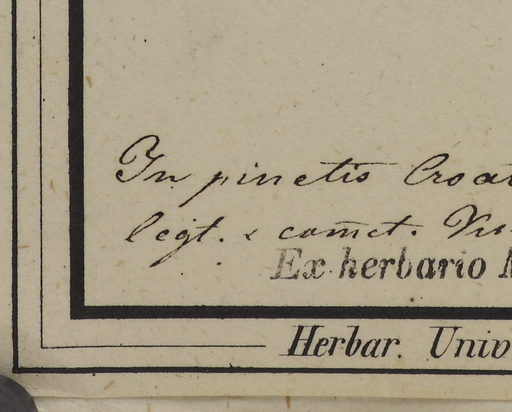 In pinetis Croat
legt. & com̅ct. Vu
Ex herbario
Herbar. Univ